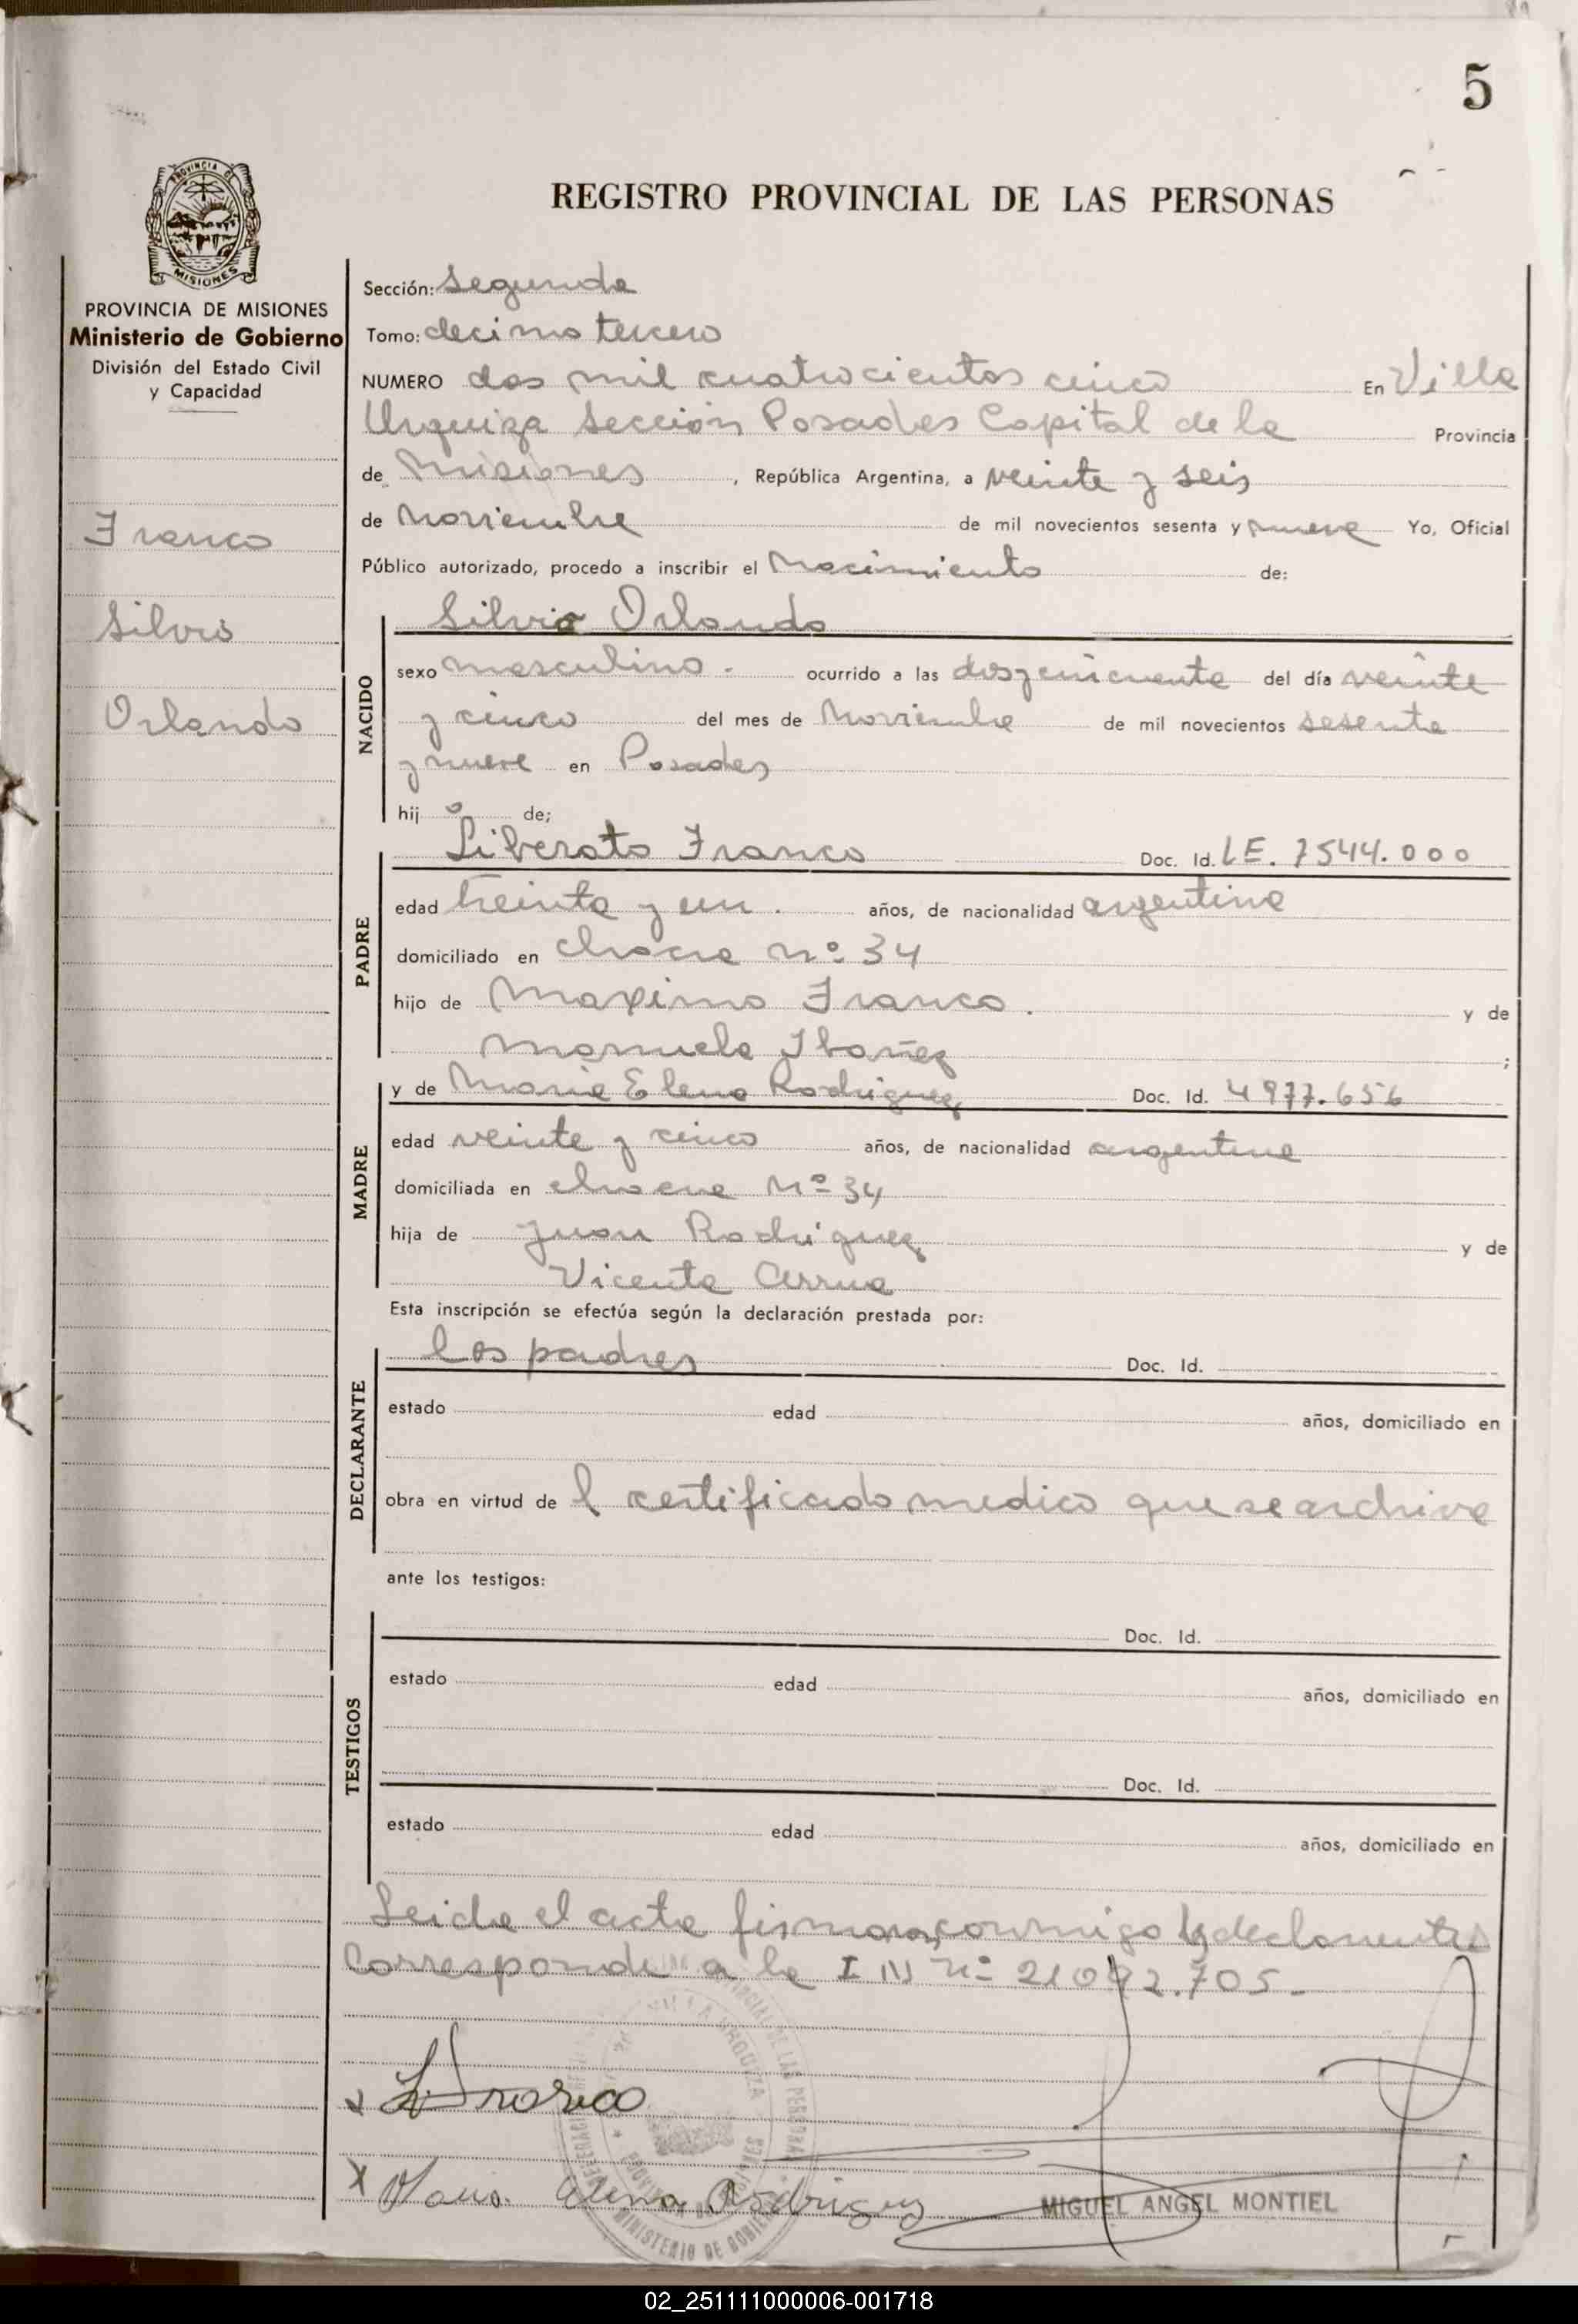 5
REGISTRO PROVINCIAL DE LAS PERSONAS
PROVINCIA DE MISIONES
Ministerio de Gobierno
División del Estado Civil
y Capacidad
Franco
Silvio
Orlando
Sección: Segunda
Tomo: decimo tercero
NUMERO dos mil cuatrocientos cinco En Villa
Urquiza Sección Posadas Capital de la Provincia
de Misiones, República Argentina, a veinte y seis
de Noviembre de mil novecientos sesenta y nueve Yo, Oficial
Público autorizado, procedo a inscribir el Nacimiento de:
Silvio Orlando
NACIDO
sexo masculino.- ocurrido a las dos y cincuenta del día veinte
y cinco del mes de Noviembre de mil novecientos sesenta
y nueve en Posadas
hijo de;
PADRE
Liberato Franco Doc. Id. LE. 7544.000
edad treinta y un. años, de nacionalidad argentina
domiciliado en chacra Nº 34
hijo de Maximo Franco. y de
Manuela Ibañez ;
MADRE
y de Maria Elena Rodriguez Doc. Id. 4977.656
edad veinte y cinco años, de nacionalidad argentina
domiciliada en chacra Nº 34
hija de Juan Rodriguez y de
Vicenta Arrua
Esta inscripción se efectúa según la declaración prestada por:
DECLARANTE
los padres Doc. Id.
estado edad años, domiciliado en
obra en virtud de l certificado medico que se archiva
ante los testigos:
TESTIGOS
Doc. Id.
estado edad años, domiciliado en
Doc. Id.
estado edad años, domiciliado en
Leida el acta firman conmigo los declarantes
Corresponde a la I N Nº 21092.705.-
L Franco
Maria Elena Rodriguez
MIGUEL ANGEL MONTIEL
02_251111000006-001718